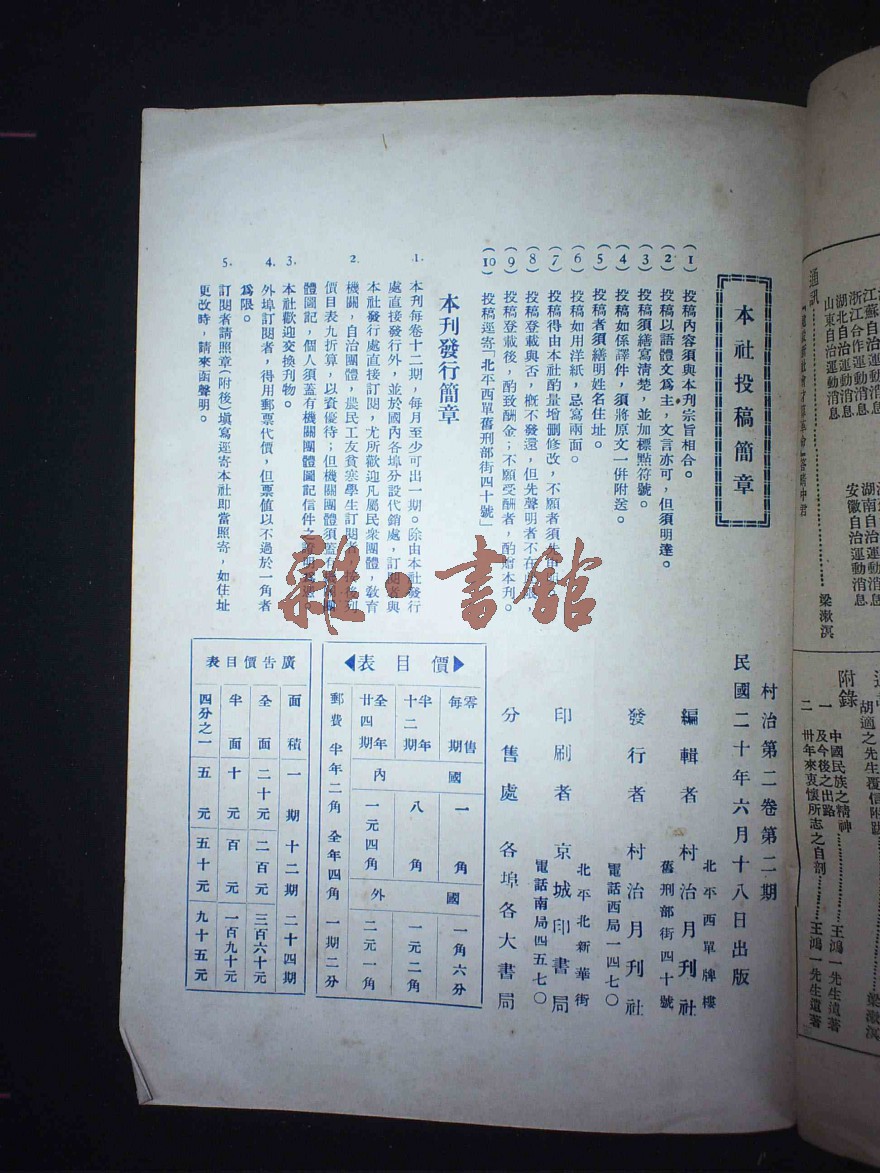 本社投稿簡章
(1) 投稿內容須與本刊宗旨相合。
(2) 投稿以語體文為主，文言亦可，但須明達。
(3) 投稿須繕寫清楚，並加標點符號。
(4) 投稿如係譯件，須將原文一併附送。
(5) 投稿者須繕明姓名住址。
(6) 投稿如用洋紙，忌寫兩面。
(7) 投稿得由本社酌量增删修改，不願者須先
(8) 投稿登載與否，概不發還，但先聲明者不在
(9) 投稿登載後，酌致酬金；不願受酬者，酌贈本刊。
(10) 投稿逕寄「北平西單舊刑部街四十號」
本刊發行簡章
1. 本刊每卷十二期，每月至少可出一期。除由本社發行
處直接發行外，並於國內各埠分設代銷處，訂閱者與
本社發行處直接訂閱，尤所歡迎凡屬民衆團體，敎育
2. 機關，自治團體，農民工友貧寒學生訂閱者，按後列
價目表九折算，以資優待；但機關團體須蓋有
體圖記，個人須蓋有機關團體圖記信件之
3. 本社歡迎交換刊物。
4. 外埠訂閱者，得用郵票代價，但票值以不過於一角者
為限。
5. 訂閱者請照章(附後)填寫逕寄本社即當照寄，如住址
更改時，請來函聲明。
村治第二卷第二期
民國二十年六月十八日出版
編輯者 村治月刊社
北平西單牌樓
舊刑部街四十號
發行者 村治月刊社
電話西局一四七〇
印刷者 京城印書局
北平北新華街
電話南局四五七〇
分售處 各埠各大書局
價目表
零售每期 國內 一角 國外 一角六分
半年十二期 八角 一元二角
全年廿四期 一元四角 二元一角
郵費 半年二角 全年四角 一期二分
廣告價目表
面積 一期 十二期 二十四期
全面 二十元 二百元 三百六十元
半面 十元 百元 一百九十元
四分之一 五元 五十元 九十五元
江蘇自治運動消息
浙江合作運動消息
湖北自治運動消息
山東自治運動消息
湖南自治運動消息
安徽自治運動消息
通訊
梁漱溟
胡適之先生覆信附跋
梁漱溟
附錄
一 中國民族之精神及今後之出路 王鴻一先生遺著
二 卅年來衷懷所志之自剖 王鴻一先生遺著
雜 書館